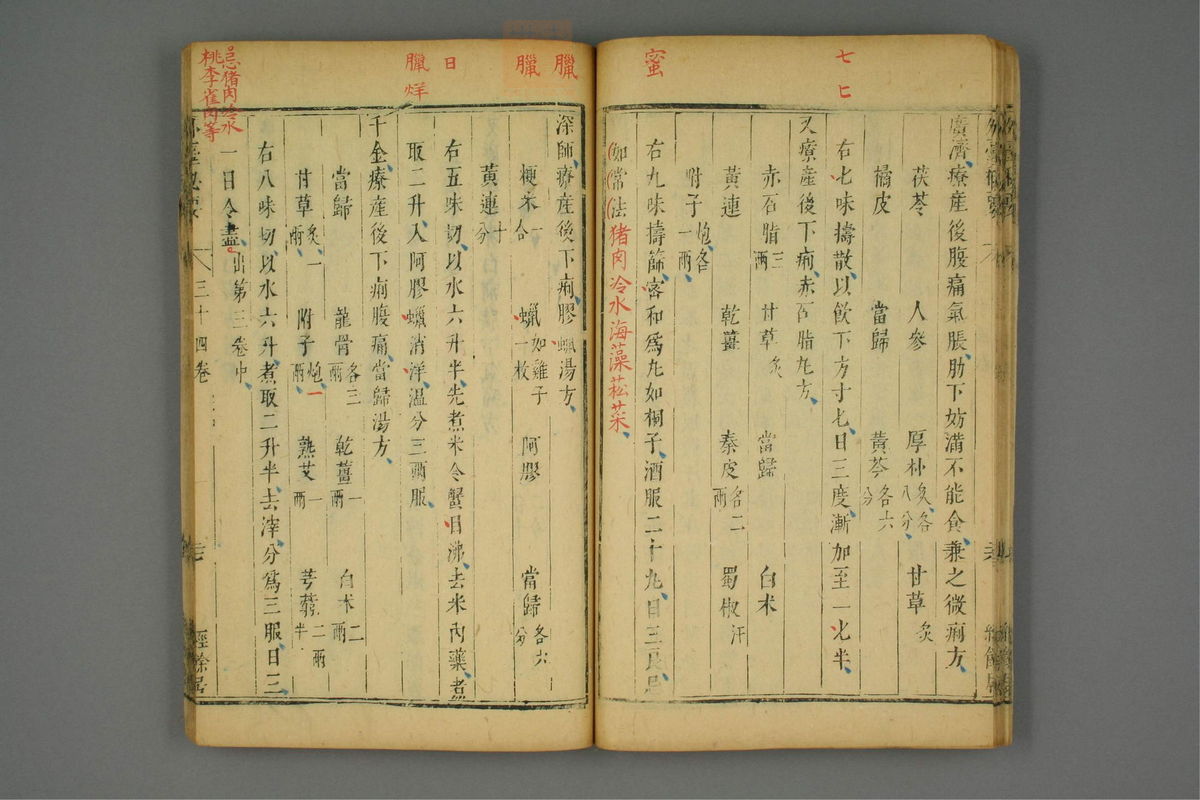 七
匕
蜜
廣濟療産後腹痛氣脹肋下妨滿不能食兼之微痢方
茯苓 人參 厚朴炙各八分 甘草炙
橘皮 當歸 黃芩各六分
右七味擣散以飲下方寸七日三度漸加至一七半
又療産後下痢赤石脂丸方
赤石脂三兩 甘草炙 當歸 白朮
黃連 乾薑 秦皮各二兩 蜀椒汗
附子炮各一兩
右九味擣篩宻和爲丸如桐子酒服二十丸日三良忌
如常法猪肉冷水海藻菘菜
臘
臘
日
臘烊
忌猪肉冷水
桃李雀肉等
深師療産後下痢膠蠟湯方
粳米一合 蠟如雞子一枚 阿膠 當歸各六分
黃連十分
右五味切以水六升半先煮米令蟹目沸去米內藥煮
取二升入阿膠蠟消洋溫分三兩服
千金療産後下痢腹痛當歸湯方
當歸 龍骨各三兩 乾薑一兩 白朮二兩
甘草炙一兩 附子炮一兩 熟艾一兩 芎藭二兩半
右八味切以水六升煮取二升半去滓分爲三服日三
一日令盡出第三卷中
三十四卷
經餘居